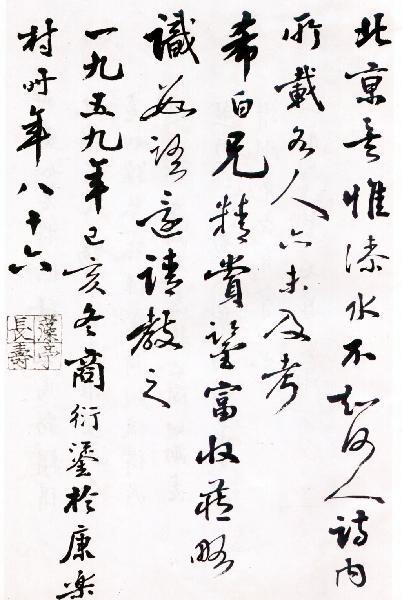 北京吾惟溱水不知何人詩内
所載各人亦未及考
希白兄精賞鑒富收藏略
識數語還請教之
一九五九年己亥冬商衍鎏於康樂
村時年八十六
藻亭長壽